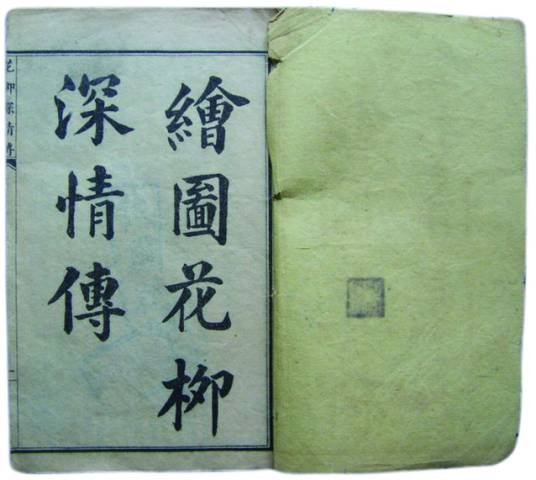 繪圖花柳
深情傳
花柳深情傳